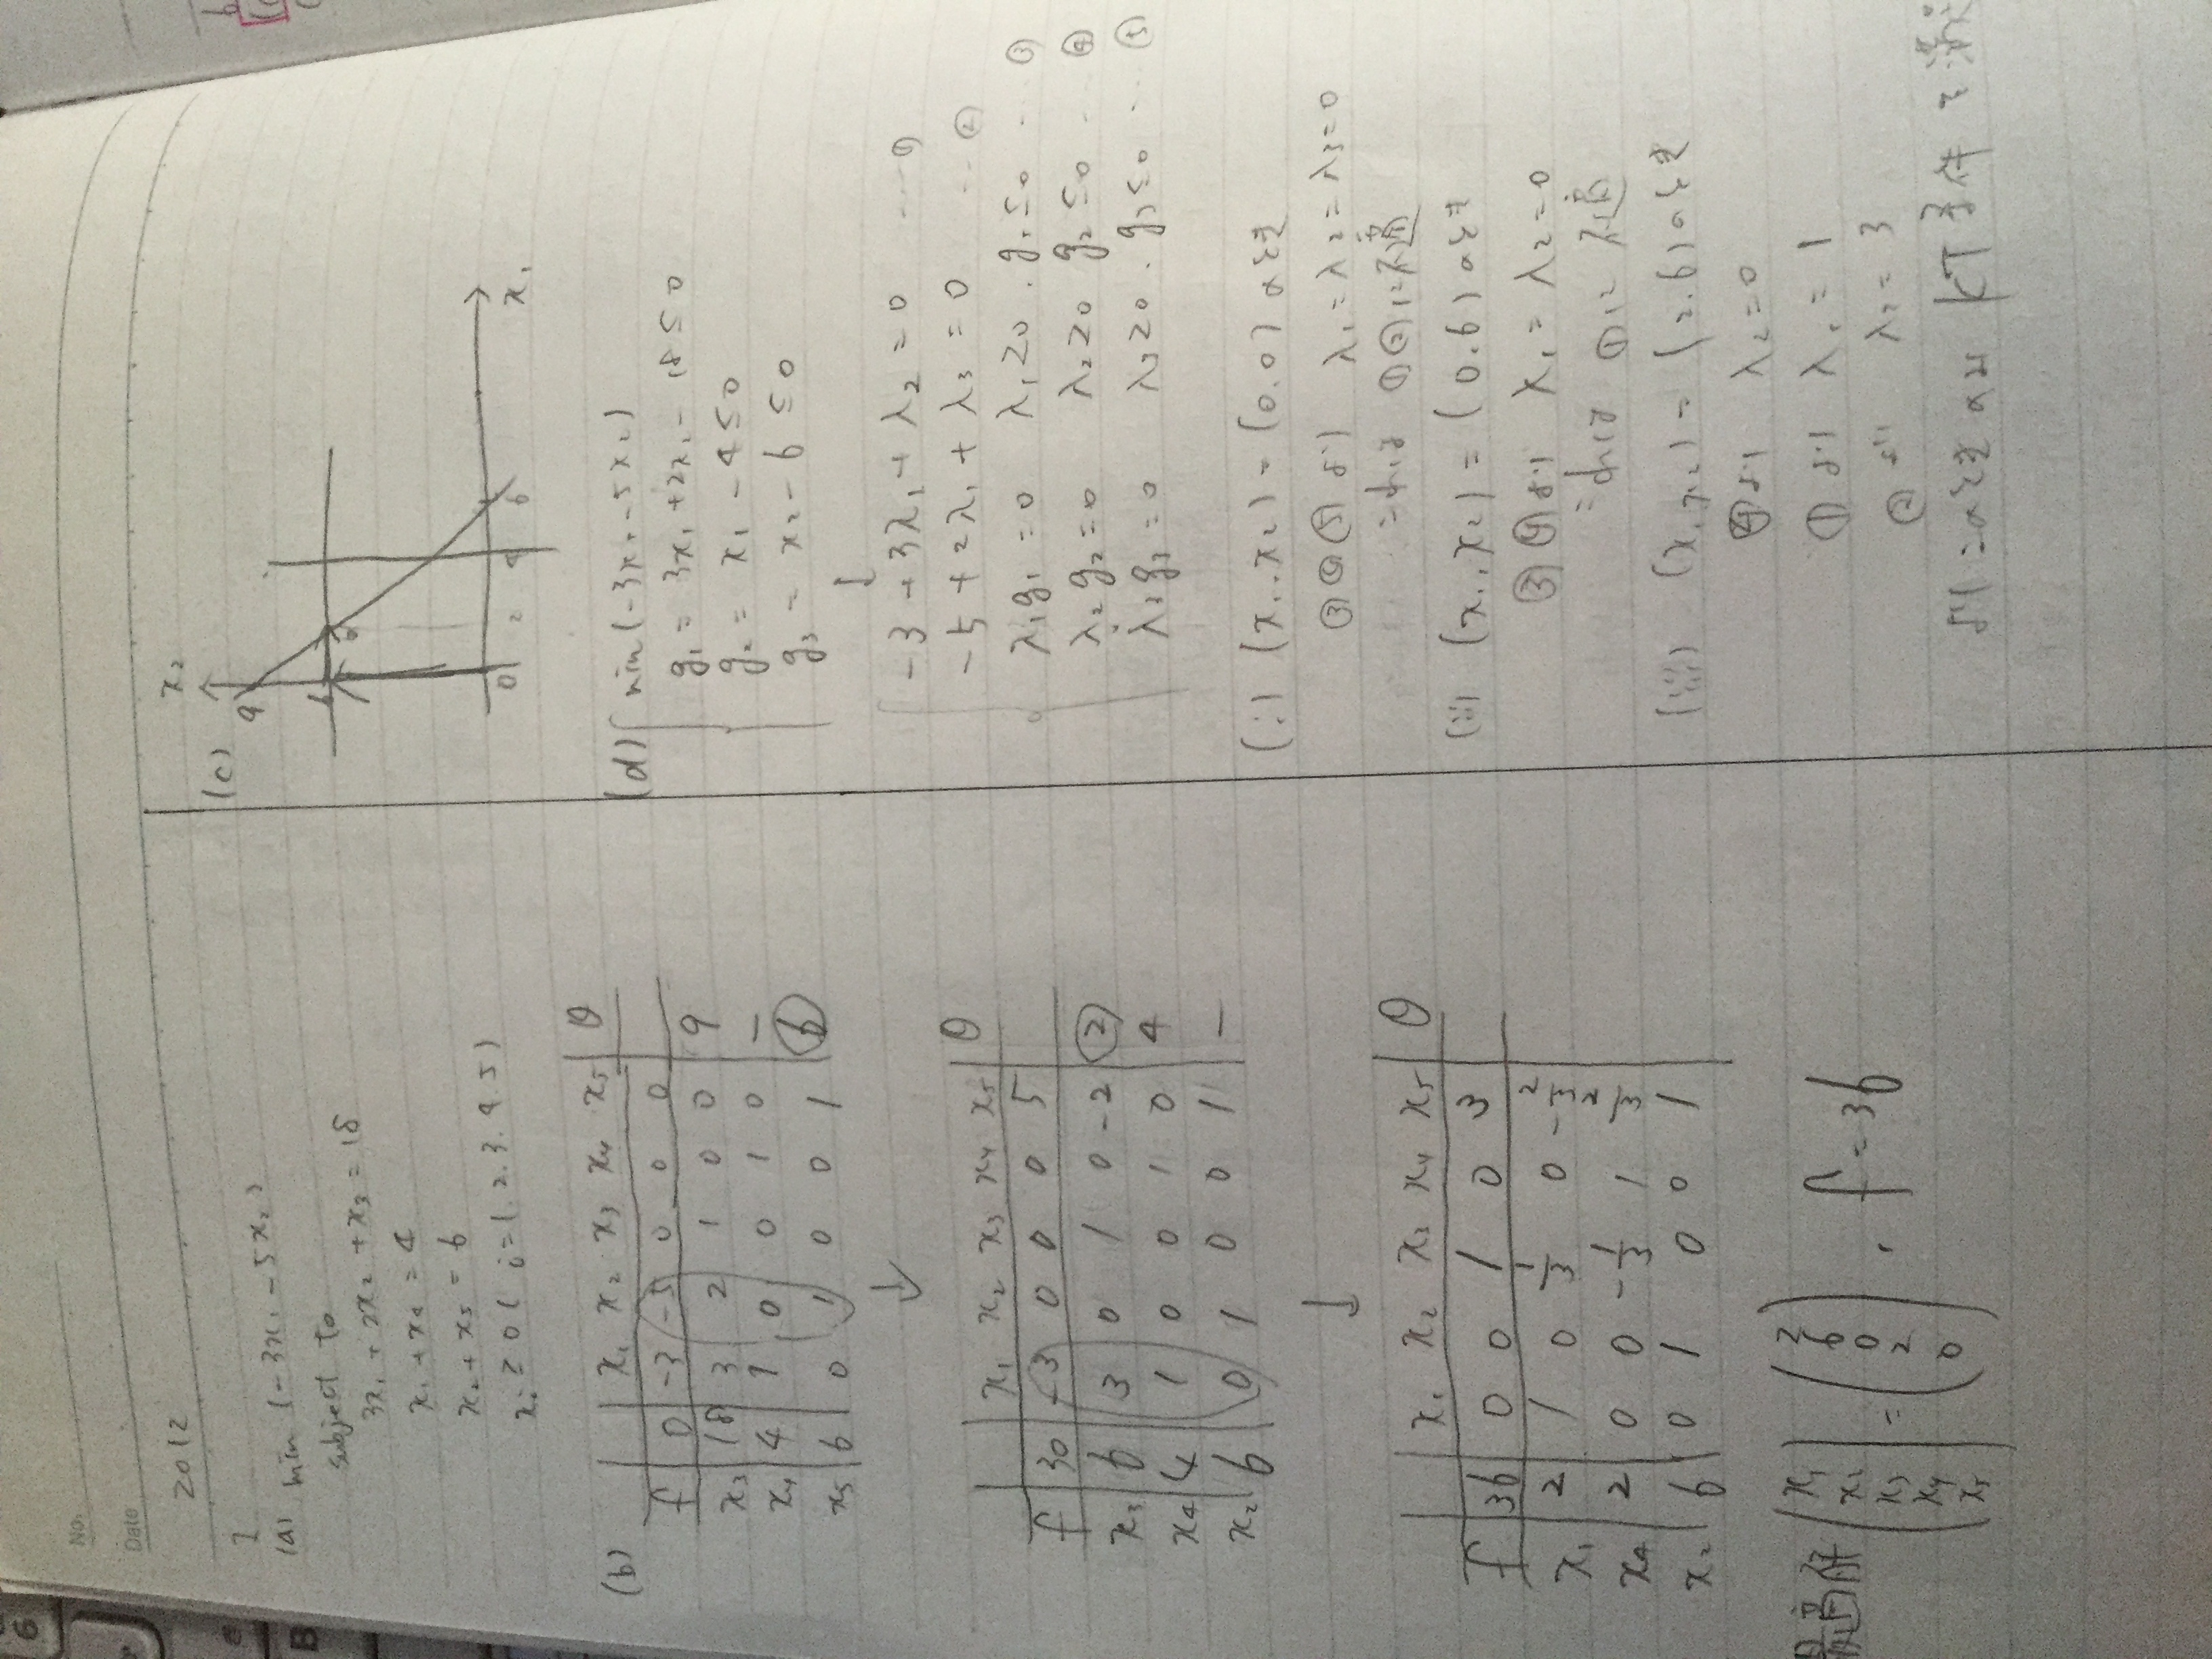 No.
Date
2012
1
(a) min (-3x₁ - 5x₂)
subject to
3x₁ + 2x₂ + x₃ = 18
x₁ + x₄ = 4
x₂ + x₅ = 6
xᵢ ≥ 0 ( i = 1. 2. 3. 4. 5 )
(b)
x₁ x₂ x₃ x₄ x₅ θ
f 0 -3 -5 0 0 0
x₃ 18 3 2 1 0 0 9
x₄ 4 1 0 0 1 0 —
x₅ 6 0 1 0 0 1 6
↓
x₁ x₂ x₃ x₄ x₅ θ
f 30 -3 0 0 0 5
x₃ 6 3 0 1 0 -2 2
x₄ 4 1 0 0 1 0 4
x₂ 6 0 1 0 0 1 —
↓
x₁ x₂ x₃ x₄ x₅ θ
f 36 0 0 1 0 3
x₁ 2 1 0 1/3 0 -2/3
x₄ 2 0 0 -1/3 1 2/3
x₂ 6 0 1 0 0 1
最適解 (x₁ x₂ x₃ x₄ x₅) = (2 6 0 2 0) , f = 36
(c)
x₂
9
6
6
0 2 4 6
x₁
(d) min (-3x₁ - 5x₂)
g₁ = 3x₁ + 2x₂ - 18 ≤ 0
g₂ = x₁ - 4 ≤ 0
g₃ = x₂ - 6 ≤ 0
↓
-3 + 3λ₁ + λ₂ = 0 … ①
-5 + 2λ₁ + λ₃ = 0 … ②
λ₁g₁ = 0 λ₁ ≥ 0 . g₁ ≤ 0 … ③
λ₂g₂ = 0 λ₂ ≥ 0 g₂ ≤ 0 … ④
λ₃g₃ = 0 λ₃ ≥ 0 . g₃ ≤ 0 … ⑤
(i) (x₁, x₂) = (0.0) のとき
③④⑤より λ₁ = λ₂ = λ₃ = 0
これは ①②に不適
(ii) (x₁, x₂) = (0.6) のとき
③④より λ₁ = λ₂ = 0
これは ①に不適
(iii) (x₁, x₂) = (2.6) のとき
④より λ₂ = 0
①より λ₁ = 1
②より λ₃ = 3
より このときのみ KT条件を満